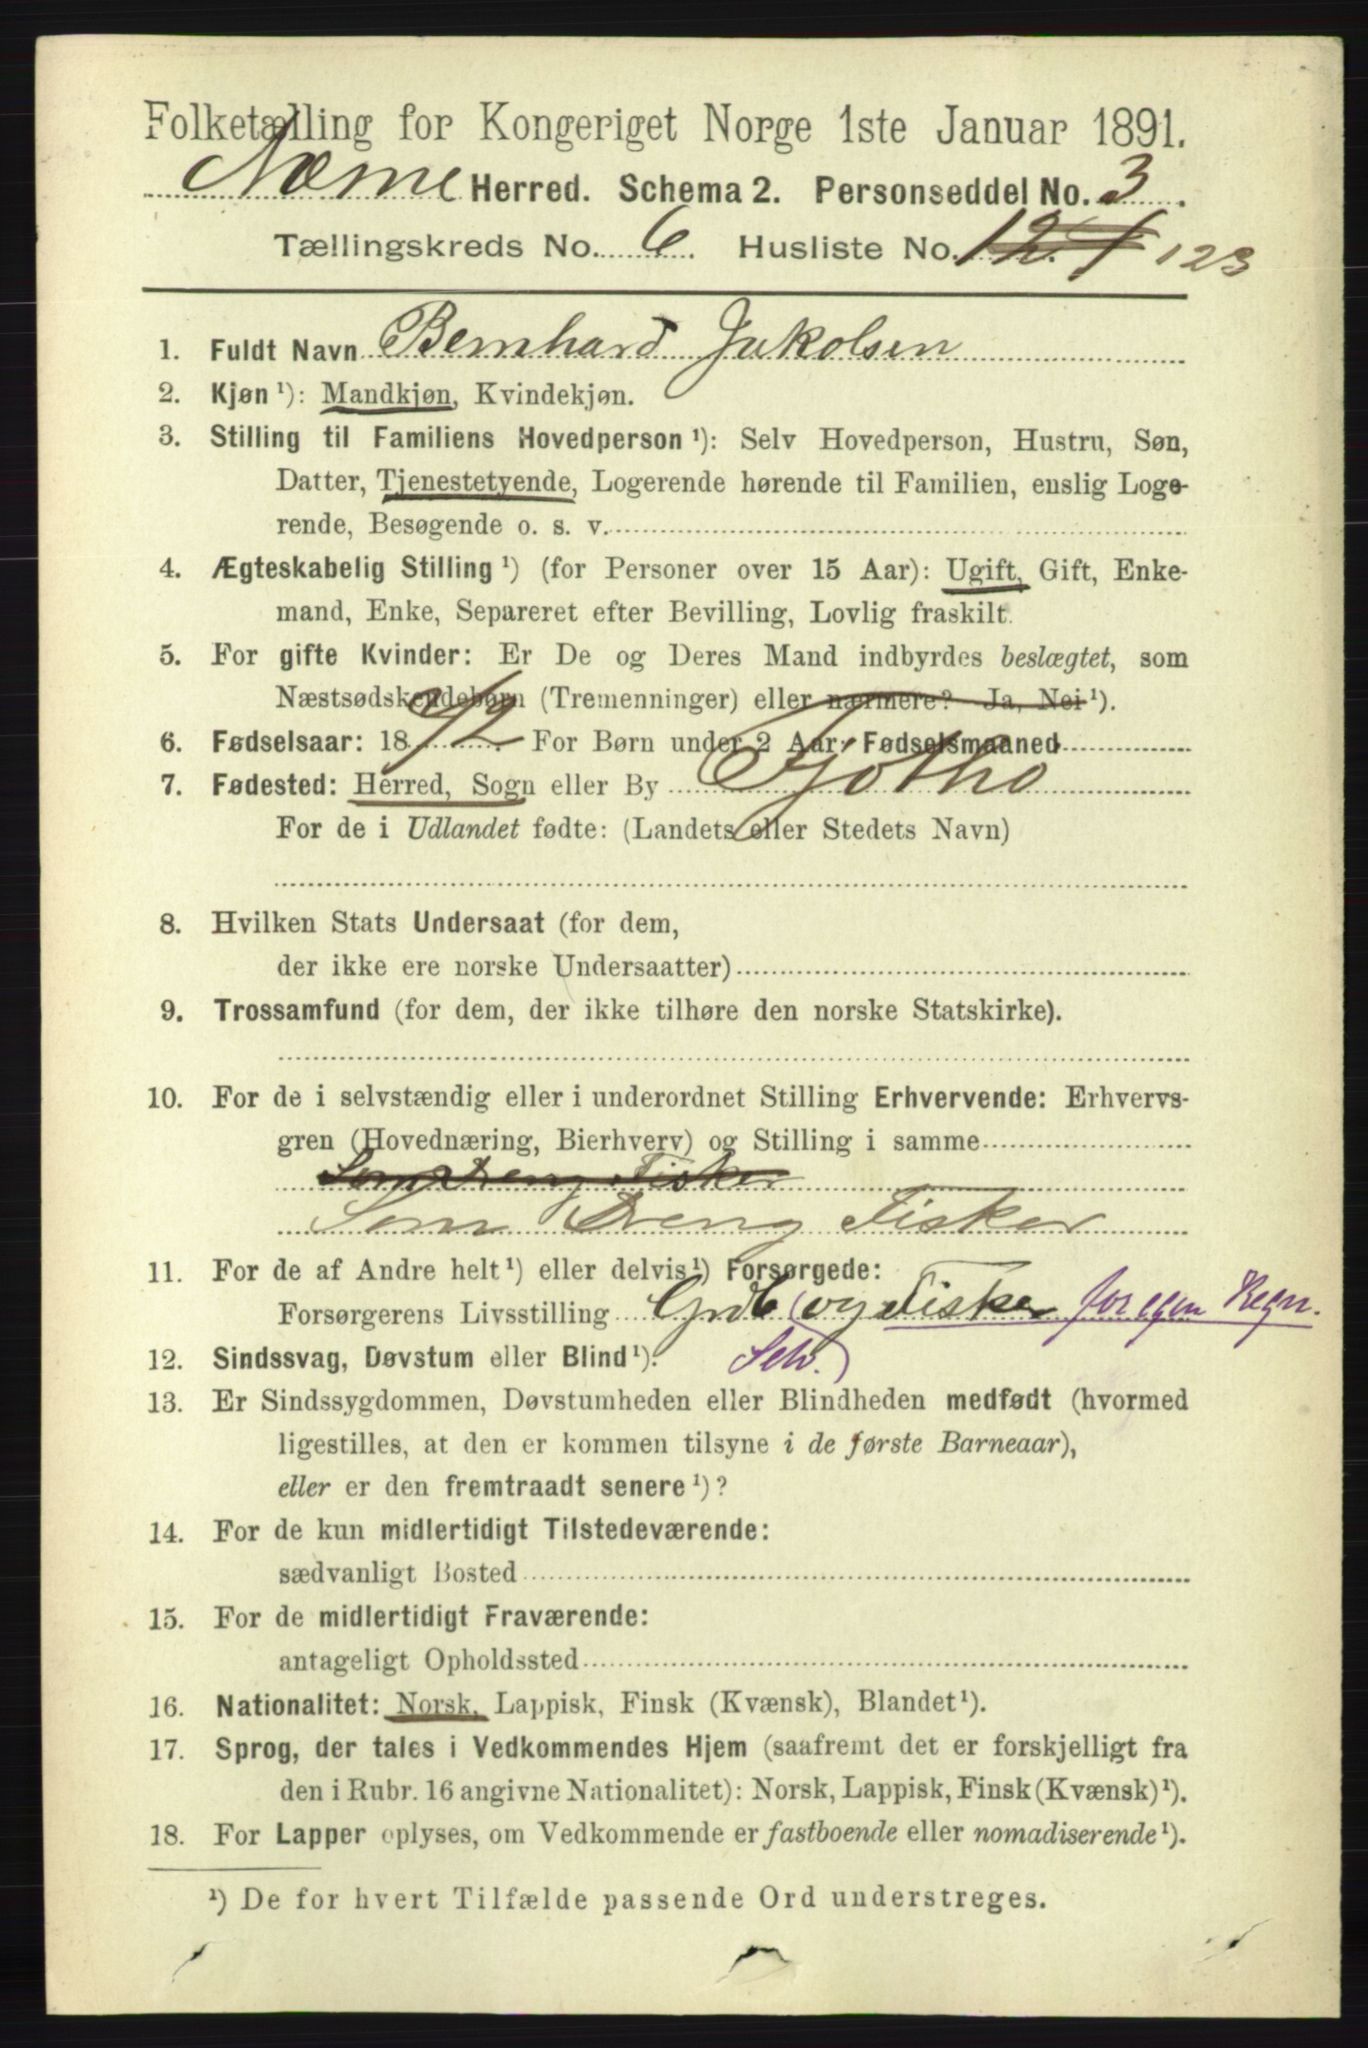 Folketælling for Kongeriget Norge 1ste Januar 1891.
Herred. Schema 2. Personseddel No. 3.
Tællingskreds No. 6. Husliste No. 121 123
1. Fuldt Navn Bernhard Jakolsen
2. Kjøn ¹): Mandkjøn, Kvindekjøn.
3. Stilling til Familiens Hovedperson ¹): Selv Hovedperson, Hustru, Søn,
Datter, Tjenestetyende, Logerende hørende til Familien, enslig Loge-
rende, Besøgende o. s. v.
4. Ægteskabelig Stilling ¹) (for Personer over 15 Aar): Ugift, Gift, Enke-
mand, Enke, Separeret efter Bevilling, Lovlig fraskilt.
5. For gifte Kvinder: Er De og Deres Mand indbyrdes beslægtet, som
Næstsødskendebørn (Tremenninger) eller nærmere? Ja, Nei ¹).
6. Fødselsaar: 1872. For Børn under 2 Aar: Fødselsmaaned
7. Fødested: Herred, Sogn eller By Fjøtho
For de i Udlandet fødte: (Landets eller Stedets Navn)
8. Hvilken Stats Undersaat (for dem,
der ikke ere norske Undersaatter)
9. Trossamfund (for dem, der ikke tilhøre den norske Statskirke).
10. For de i selvstændig eller i underordnet Stilling Erhvervende: Erhvervs-
gren (Hovednæring, Bierhverv) og Stilling i samme
Som Dreng Fisker
Som Dreng Fisker
11. For de af Andre helt ¹) eller delvis ¹) Forsørgede:
Forsørgerens Livsstilling Grdb (og Fisker for egen Regn.
12. Sindssvag, Døvstum eller Blind ¹). Selv.)
13. Er Sindssygdommen, Døvstumheden eller Blindheden medfødt (hvormed
ligestilles, at den er kommen tilsyne i de første Barneaar),
eller er den fremtraadt senere ¹)?
14. For de kun midlertidigt Tilstedeværende:
sædvanligt Bosted
15. For de midlertidigt Fraværende:
antageligt Opholdssted
16. Nationalitet: Norsk, Lappisk, Finsk (Kvænsk), Blandet ¹).
17. Sprog, der tales i Vedkommendes Hjem (saafremt det er forskjelligt fra
den i Rubr. 16 angivne Nationalitet): Norsk, Lappisk, Finsk (Kvænsk) ¹).
18. For Lapper oplyses, om Vedkommende er fastboende eller nomadiserende ¹).
¹) De for hvert Tilfælde passende Ord understreges.